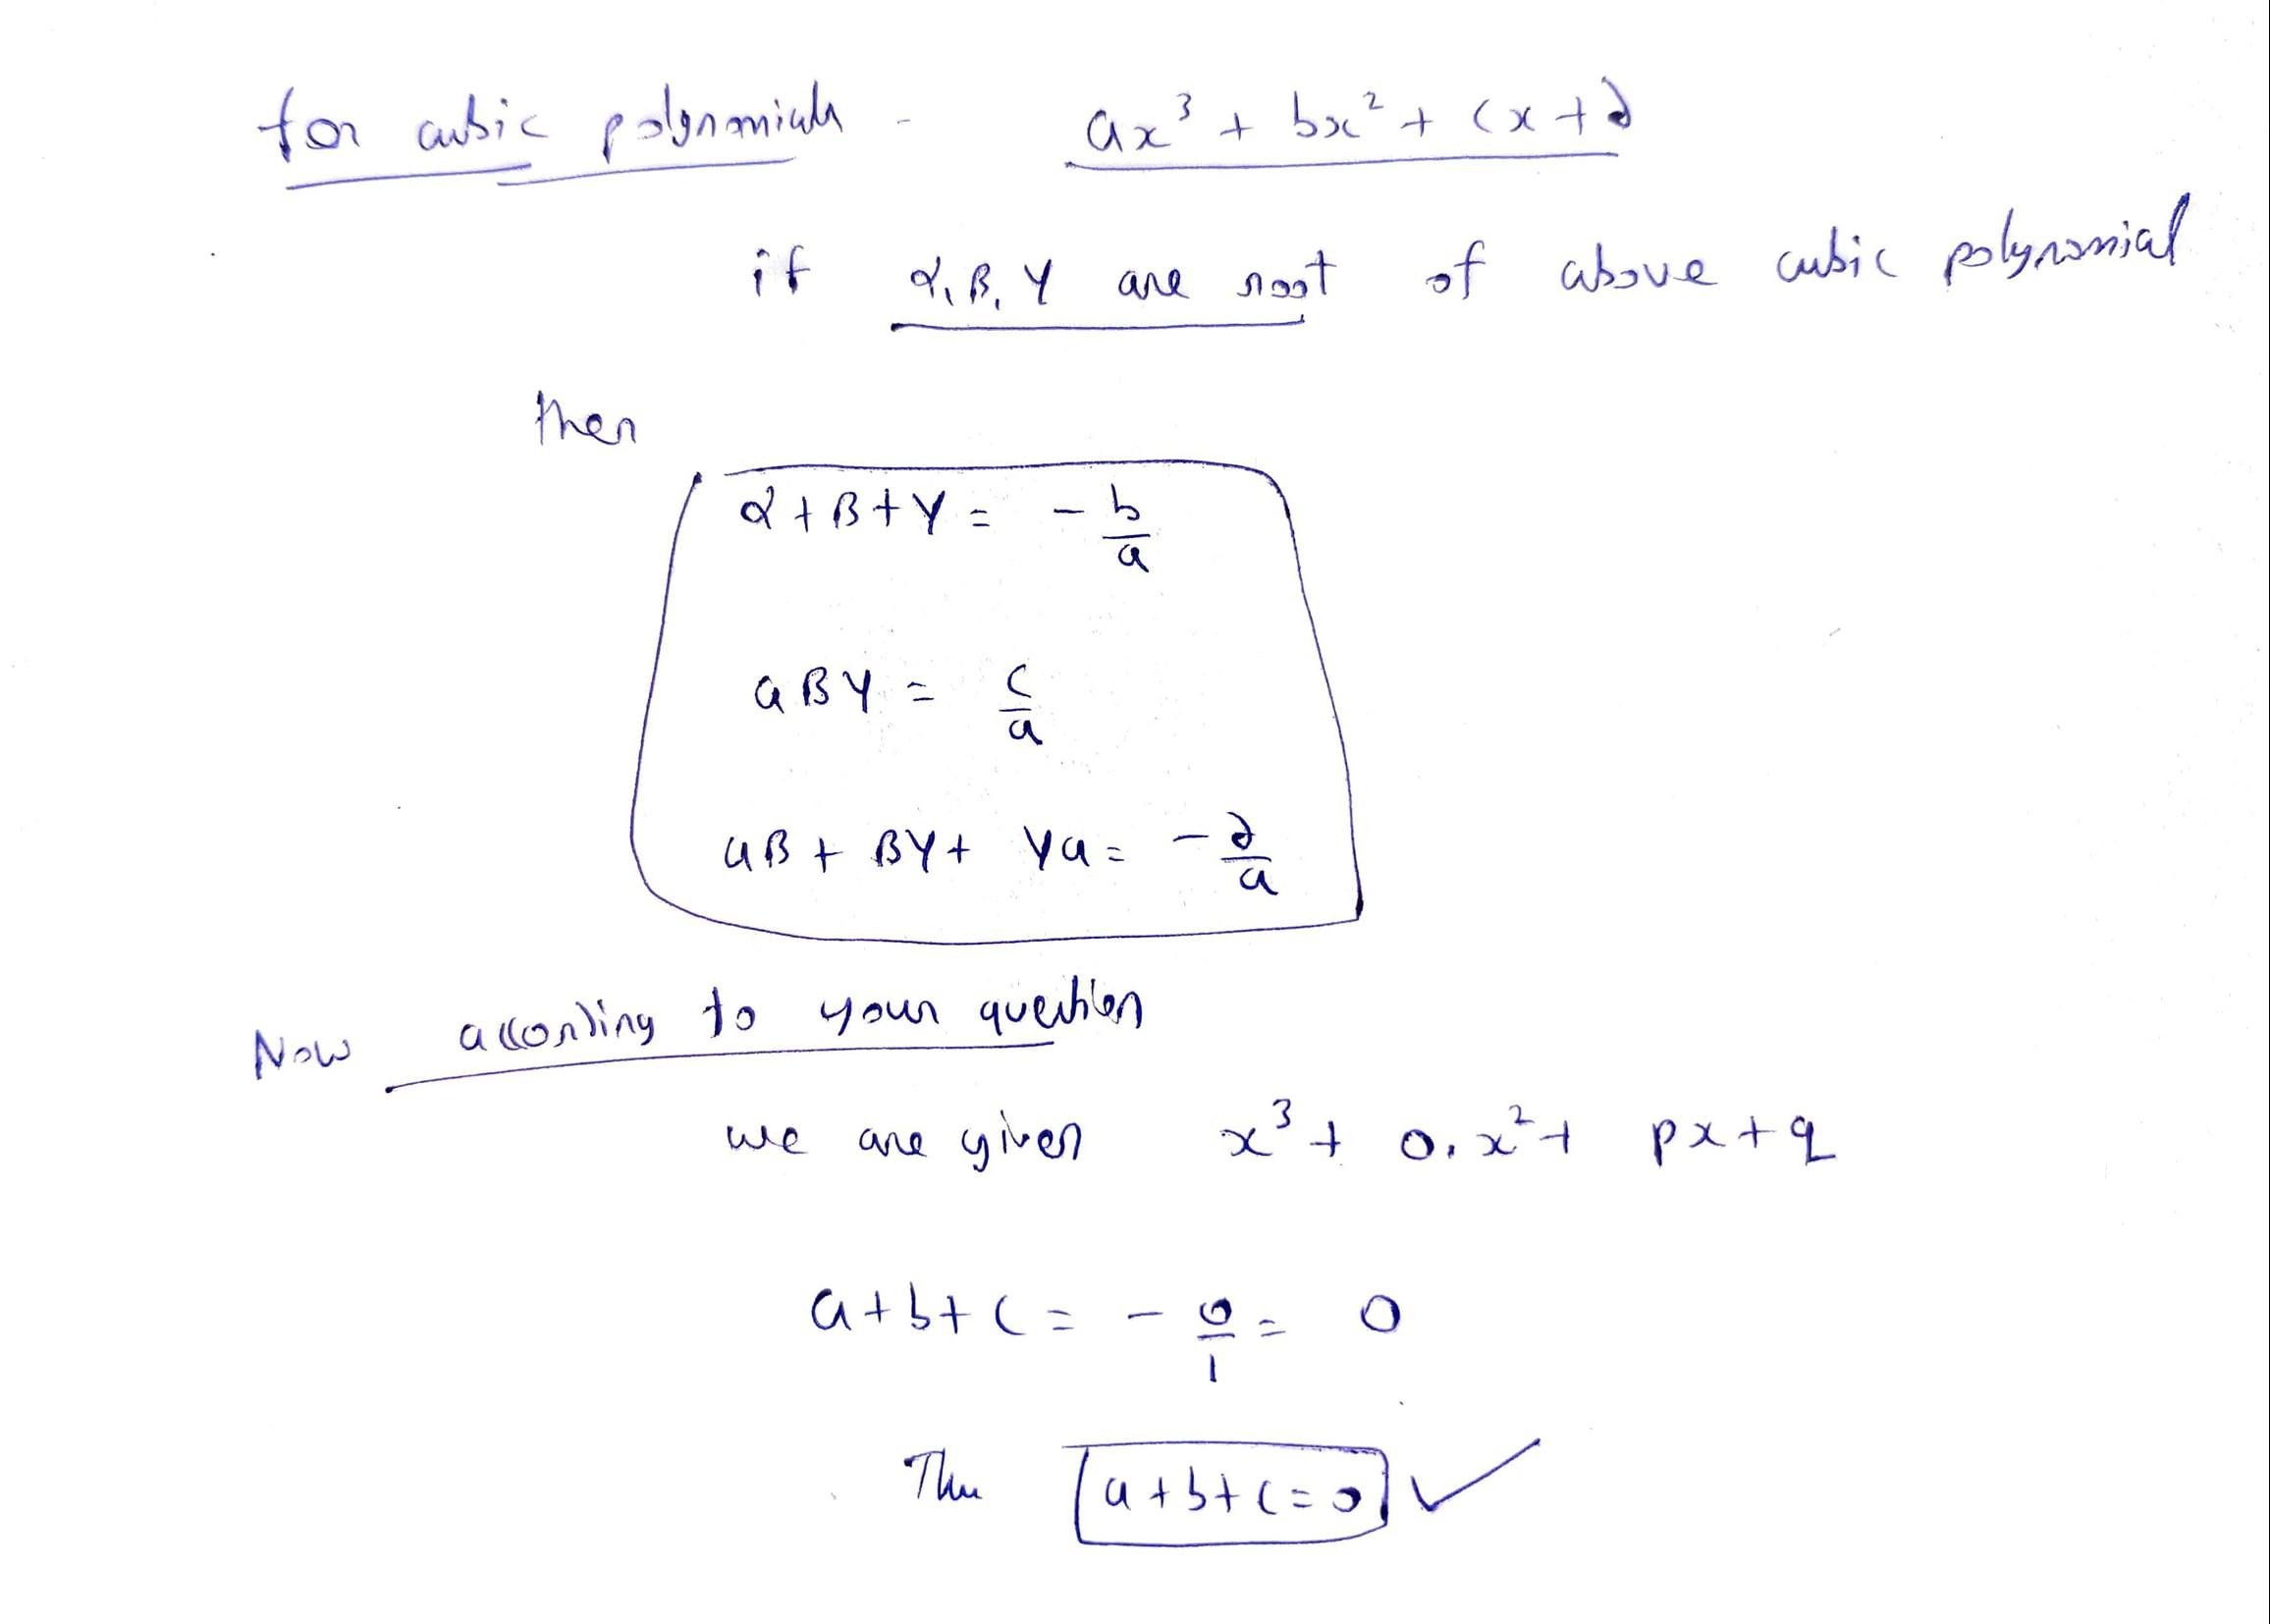 for cubic polynomials - ax³ + bx² + cx + d
if α, β, γ are root of above cubic polynomial
then
α + β + γ = - b/a
αβγ = c/a
αβ + βγ + γα = - d/a
Now according to your question
we are given x³ + 0.x² + px + q
a + b + c = - 0/1 = 0
Thus a + b + c = 0 ✓